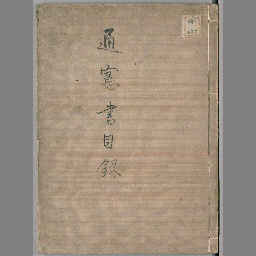 通憲書目録